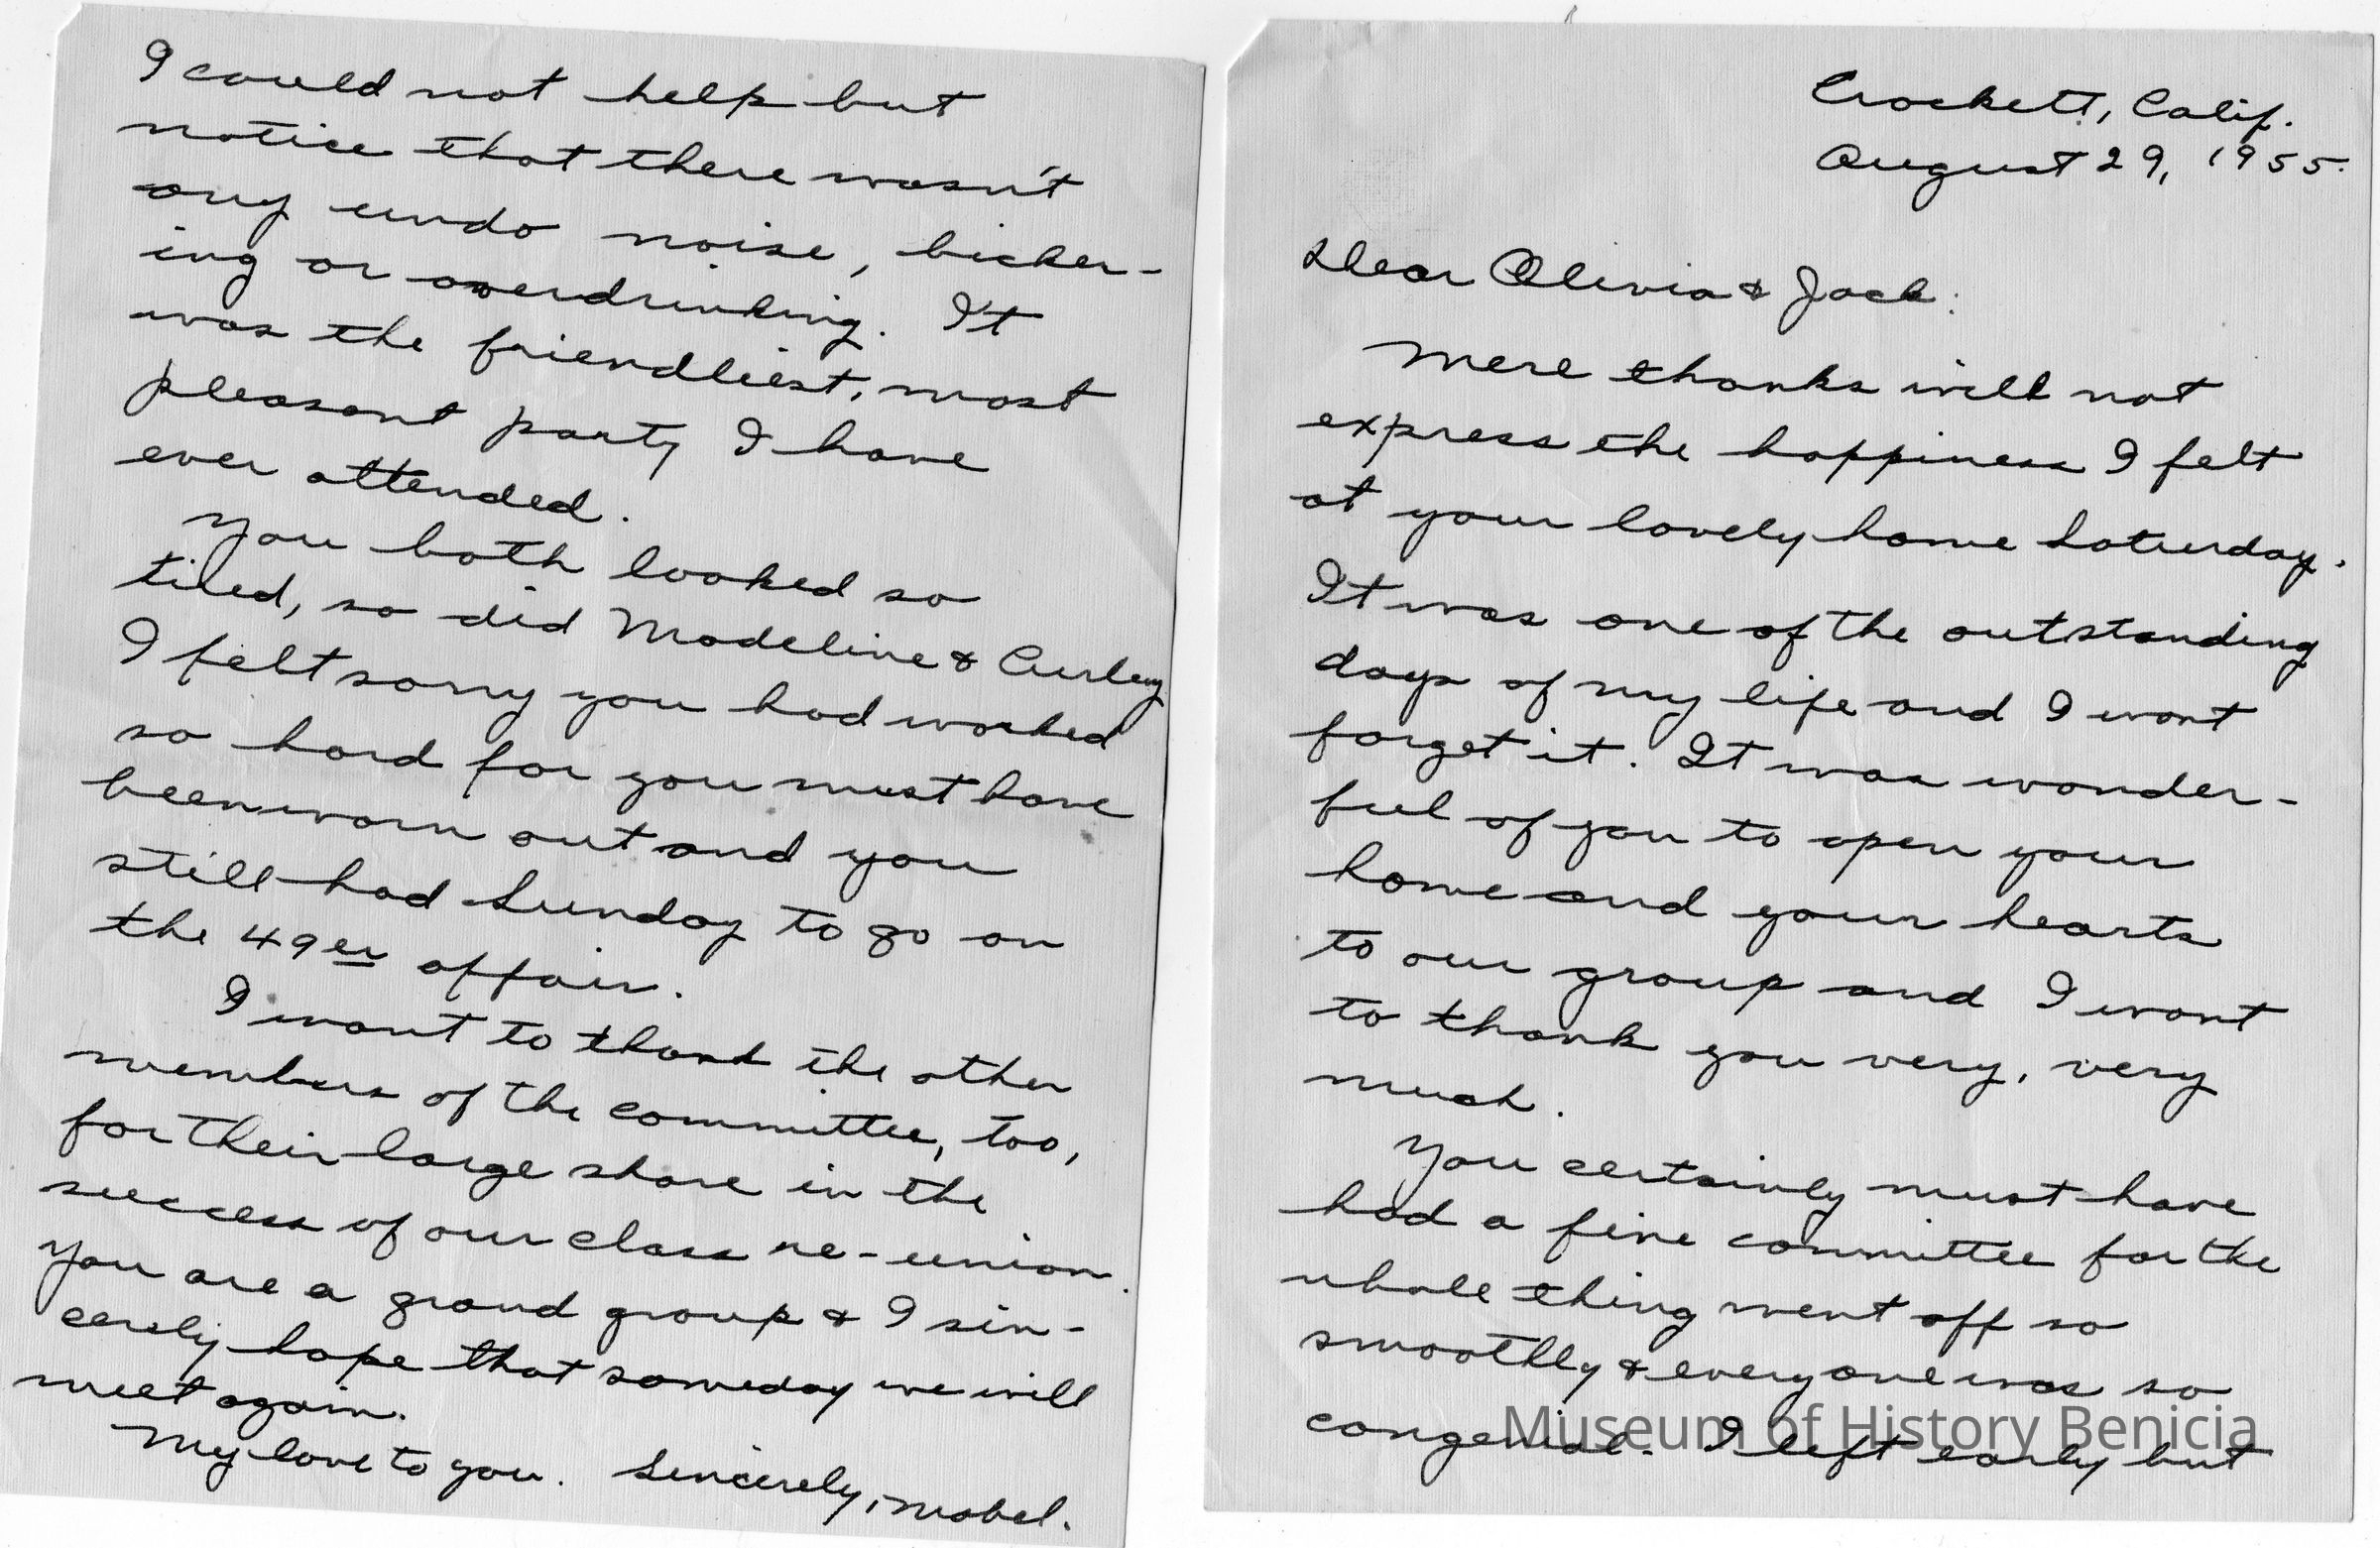 Crockett, Calif.
August 29, 1955.
Dear Olivia & Jack:
Mere thanks will not
express the happiness I felt
at your lovely home Saturday.
It was one of the outstanding
days of my life and I wont
forget it. It was wonder-
ful of you to open your
home and your hearts
to our group and I want
to thank you very, very
much.
You certainly must have
had a fine committee for the
whole thing went off so
smoothly & everyone was so
congenial. I left early but
Museum of History Benicia
I could not help but
notice that there wasn't
any undo noise, bicker-
ing or overdrinking. It
was the friendliest, most
pleasant party I have
ever attended.
You both looked so
tired, so did Madeline & Curley
I felt sorry you had worked
so hard for you must have
been worn out and you
still had Sunday to go on
the 49er affair.
I want to thank the other
members of the committee, too,
for their large share in the
success of our class re-union.
You are a grand group & I sin-
cerely hope that someday we will
meet again.
My love to you. Sincerely, Mabel.